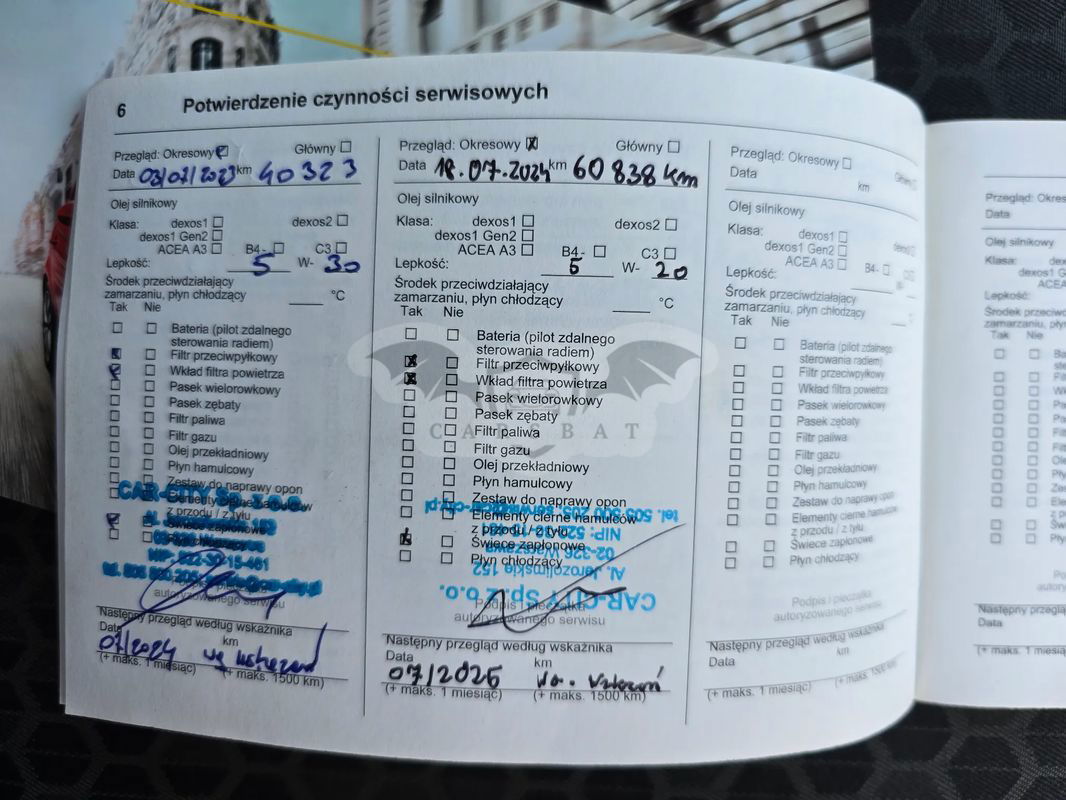 6 Potwierdzenie czynności serwisowych
Przegląd: Okresowy Główny
Data 03/07/2023 km 40 323
Olej silnikowy
Klasa: dexos1 dexos2
dexos1 Gen2
ACEA A3 B4- C3
Lepkość: 5 W- 30
Środek przeciwdziałający
zamarzaniu, płyn chłodzący °C
Tak Nie
Bateria (pilot zdalnego
sterowania radiem)
Filtr przeciwpyłkowy
Wkład filtra powietrza
Pasek wielorowkowy
Pasek zębaty
Filtr paliwa
Filtr gazu
Olej przekładniowy
Płyn hamulcowy
Zestaw do naprawy opon
Elementy cierne hamulców
z przodu / z tyłu
Świece zapłonowe
autoryzowanego serwisu
Następny przegląd według wskaźnika
Data km
07/2024 wg wskazań
(+ maks. 1 miesiąc) (+ maks. 1500 km)
Przegląd: Okresowy Główny
Data 18.07.2024 km 60 838 km
Olej silnikowy
Klasa: dexos1 dexos2
dexos1 Gen2
ACEA A3 B4- C3
Lepkość: 5 W- 20
Środek przeciwdziałający
zamarzaniu, płyn chłodzący °C
Tak Nie
Bateria (pilot zdalnego
sterowania radiem)
Filtr przeciwpyłkowy
Wkład filtra powietrza
Pasek wielorowkowy
Pasek zębaty
Filtr paliwa
Filtr gazu
Olej przekładniowy
Płyn hamulcowy
Zestaw do naprawy opon
Elementy cierne hamulców
z przodu / z tyłu
Świece zapłonowe
Płyn chłodzący
CAR-CITY Sp. z o.o.
Al. Jerozolimskie 152
02-326 Warszawa
Podpis i pieczątka
autoryzowanego serwisu
Następny przegląd według wskaźnika
Data km
07/2025 wg. wskazań
(+ maks. 1 miesiąc) (+ maks. 1500 km)
Przegląd: Okresowy Główny
Data km
Olej silnikowy
Klasa: dexos1 dexos2
dexos1 Gen2
ACEA A3 B4- C3
Lepkość: W-
Środek przeciwdziałający
zamarzaniu, płyn chłodzący °C
Tak Nie
Bateria (pilot zdalnego
sterowania radiem)
Filtr przeciwpyłkowy
Wkład filtra powietrza
Pasek wielorowkowy
Pasek zębaty
Filtr paliwa
Filtr gazu
Olej przekładniowy
Płyn hamulcowy
Zestaw do naprawy opon
Elementy cierne hamulców
z przodu / z tyłu
Świece zapłonowe
Płyn chłodzący
Podpis i pieczątka
autoryzowanego serwisu
Następny przegląd według wskaźnika
Data km
(+ maks. 1 miesiąc) (+ maks. 1500 km)
Data
Olej silnikowy
Klasa:
Lepkość:
Tak Nie
Data
(+ maks. 1
CARSBAT